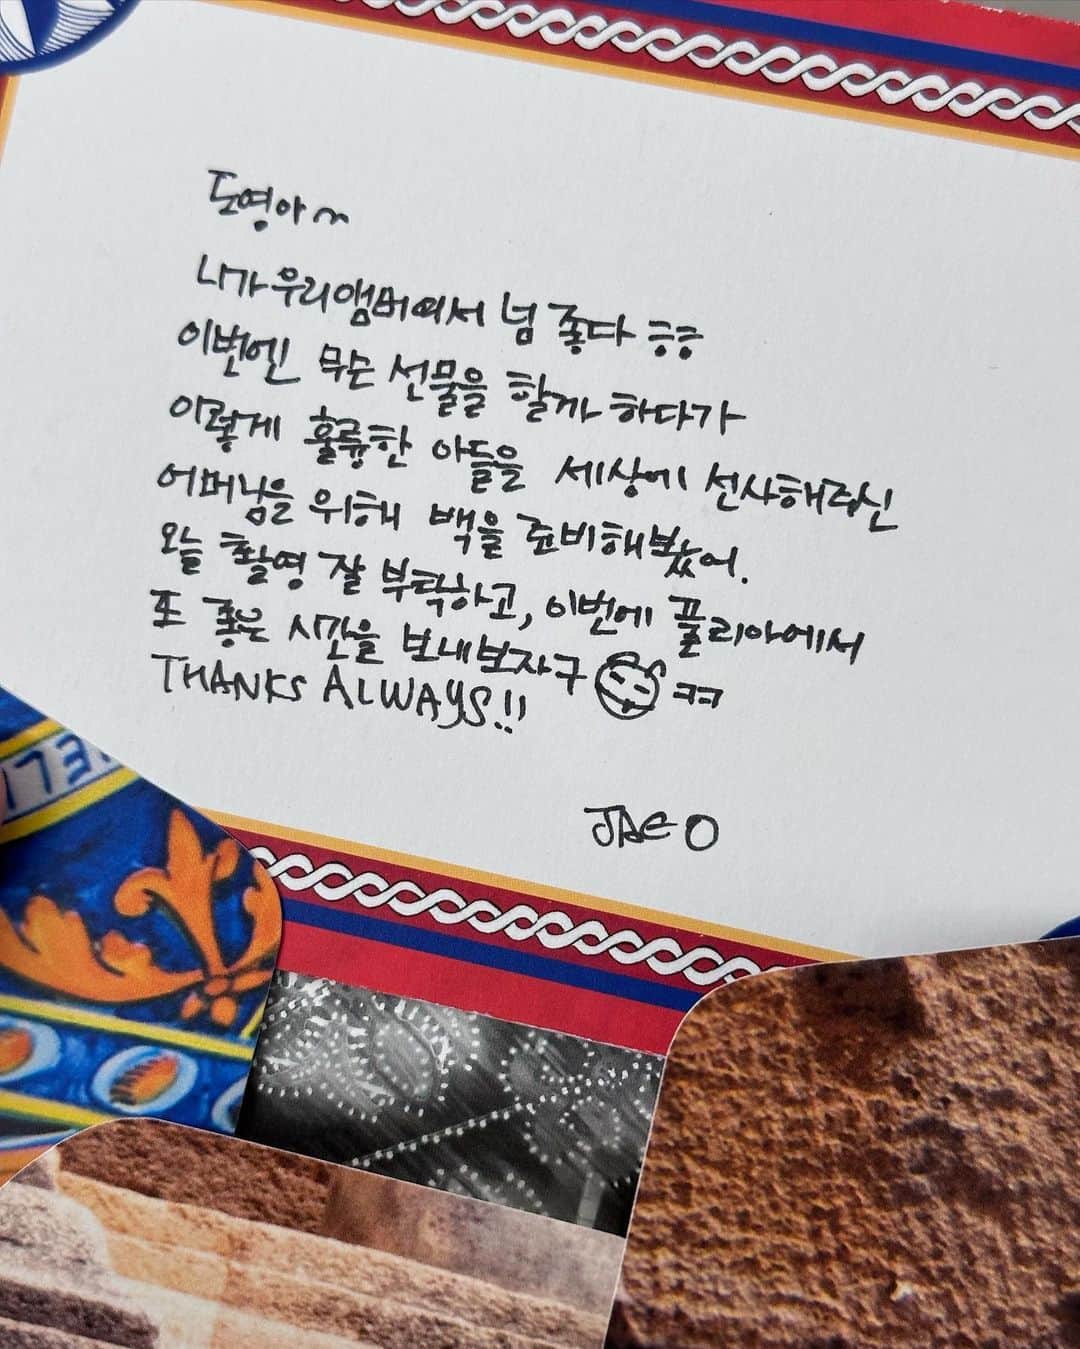 도영아~
니가 우리 앰버여서 넘 좋다 ㅎㅎ
이번엔 무슨 선물을 할까 하다가
이렇게 훌륭한 아들을 세상에 선사해주신
어머님을 위해 백을 준비해봤어.
오늘 촬영 잘 부탁하고, 이번에 풀리아에서
또 좋은 시간을 보내보자구 ㅋㅋ
THANKS ALWAYS!!
JAE O